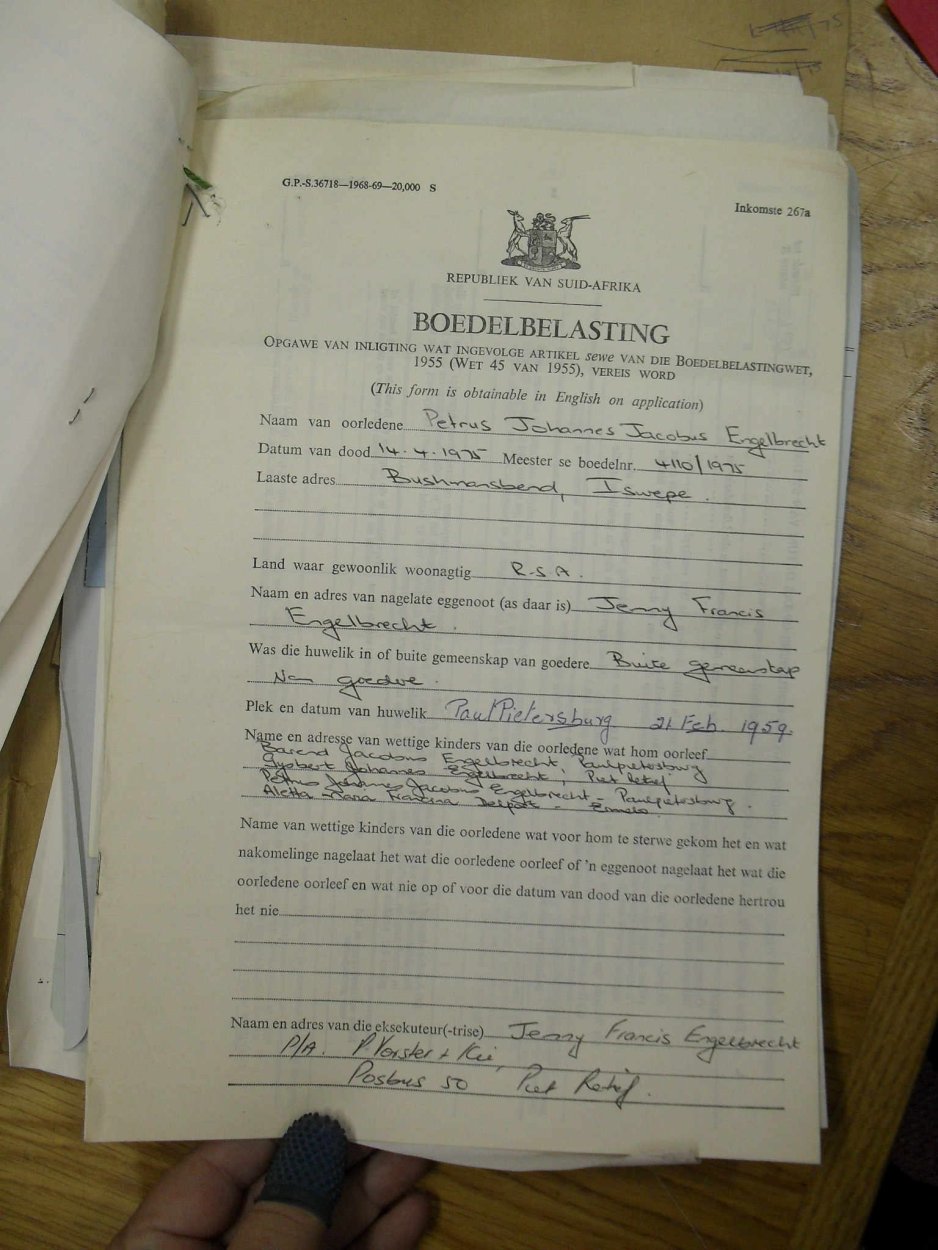 G.P.-S.36718—1968-69—20,000 S
Inkomste 267a
REPUBLIEK VAN SUID-AFRIKA
BOEDELBELASTING
OPGAWE VAN INLIGTING WAT INGEVOLGE ARTIKEL sewe VAN DIE BOEDELBELASTINGWET,
1955 (WET 45 VAN 1955), VEREIS WORD
(This form is obtainable in English on application)
Naam van oorledene Petrus Johannes Jacobus Engelbrecht
Datum van dood 14.4.1975 Meester se boedelnr. 4110/1975
Laaste adres Bushmansbend, Iswepe.
Land waar gewoonlik woonagtig R.S.A.
Naam en adres van nagelate eggenoot (as daar is) Jenny Francis
Engelbrecht.
Was die huwelik in of buite gemeenskap van goedere Buite gemeenskap
van goedere.
Plek en datum van huwelik PaulPietersburg 21 Feb. 1959.
Name en adresse van wettige kinders van die oorledene wat hom oorleef
Barend Jacobus Engelbrecht, Paulpietersburg
Gysbert Johannes Engelbrecht, Piet Retief
Petrus Johannes Jacobus Engelbrecht - Paulpietersburg.
Aletta Maria Francina - Ermelo.
Name van wettige kinders van die oorledene wat voor hom te sterwe gekom het en wat
nakomelinge nagelaat het wat die oorledene oorleef of 'n eggenoot nagelaat het wat die
oorledene oorleef en wat nie op of voor die datum van dood van die oorledene hertrou
het nie
Naam en adres van die eksekuteur(-trise) Jenny Francis Engelbrecht
P/A. P. Vorster + Kie,
Posbus 50 Piet Retief.